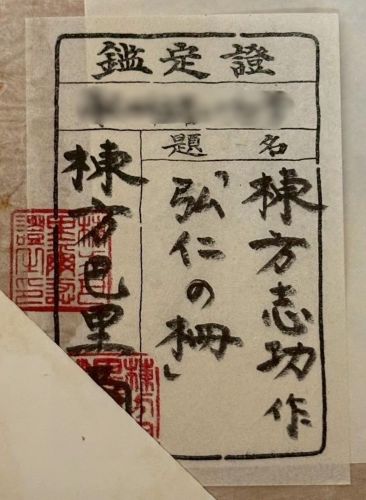 鑑定證
題名
棟方志功作
「弘仁の柵」
棟方巴里爾